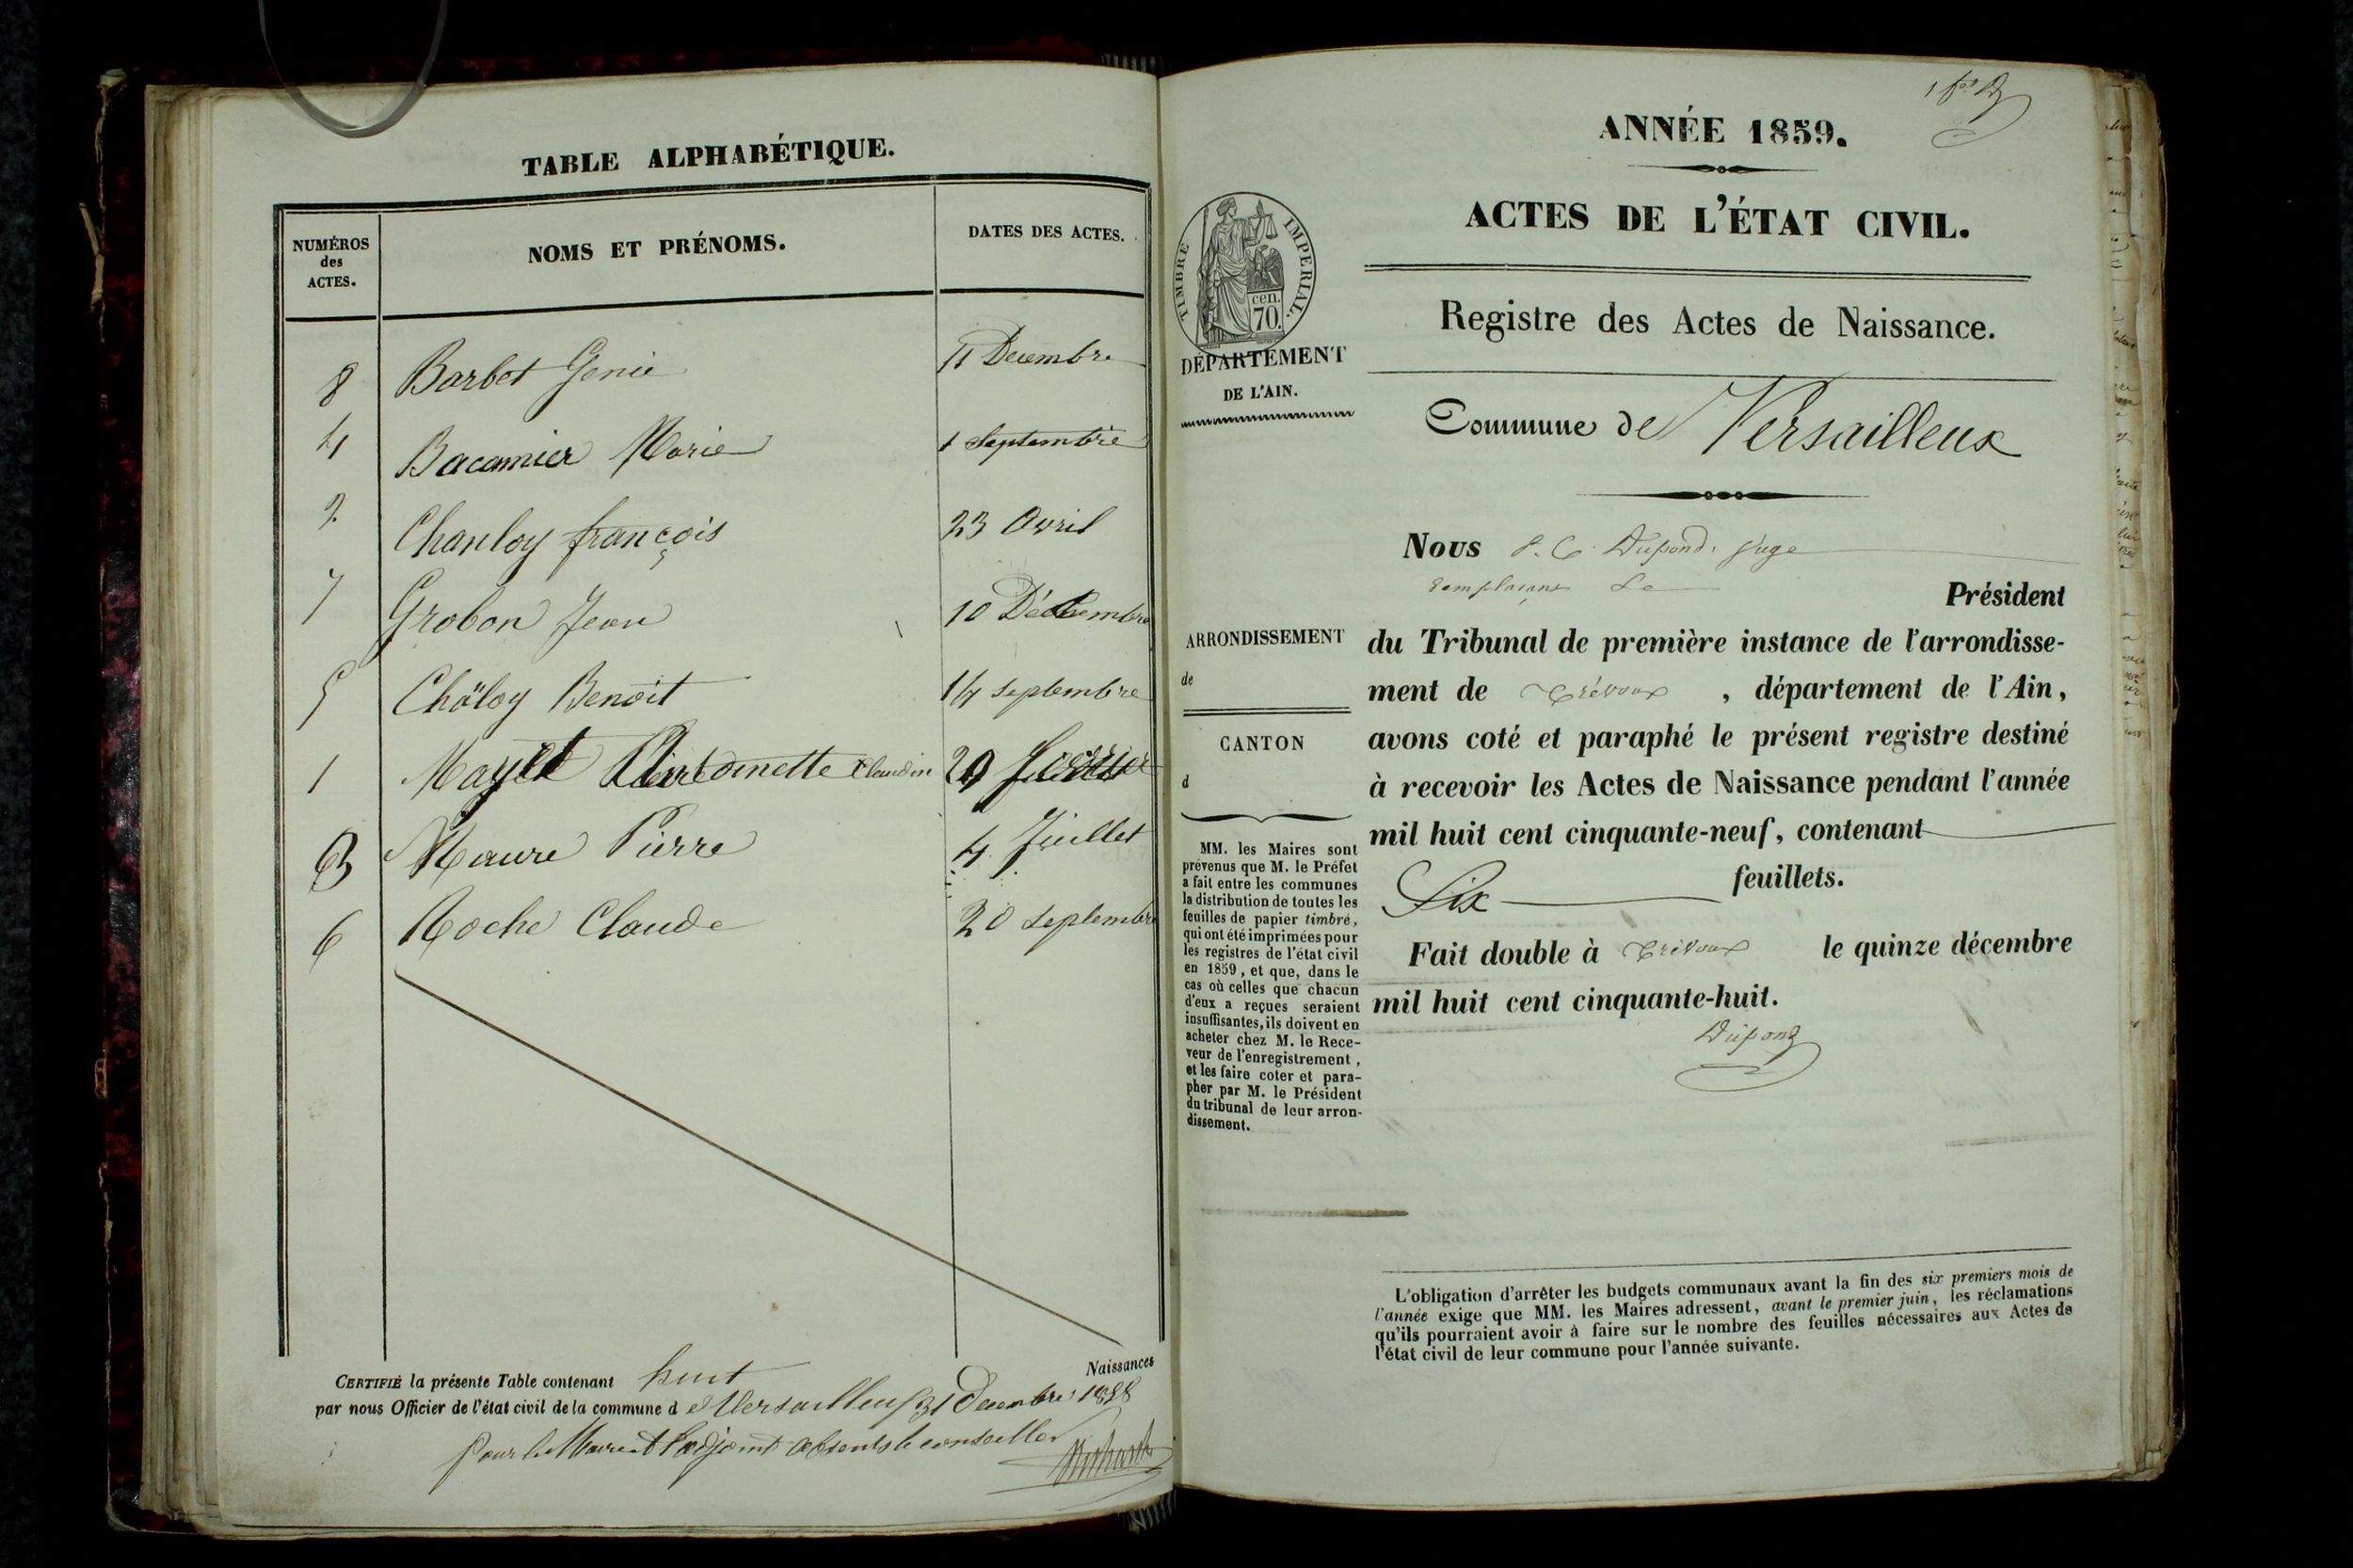 TABLE ALPHABÉTIQUE.
NUMÉROS
des
ACTES.
NOMS ET PRÉNOMS.
DATES DES ACTES.
8 Barbet Genie 11 Decembre
4 Bacamier Marie 1 Septembre
2 Chanloy françois 23 Avril
7 Grobon Jean 10 Décembre
5 Chäloy Benoit 14 septembre
1 Mayet Claudin 20
3 Maure Pierre 4 Juillet
6 Roche Claude 20 septembre
CERTIFIÉ la présente Table contenant huit Naissances
par nous Officier de l'état civil de la commune d e Versailleux 31 Decembre 1858
pour le Maire et l'adjoint absents le conseiller
1er
ANNÉE 1859.
ACTES DE L'ÉTAT CIVIL.
Registre des Actes de Naissance.
TIMBRE IMPERIAL.
cen.
70.
DÉPARTEMENT
DE L'AIN.
Commune de Versailleux
Nous Dupond, juge
remplaçant le
Président
du Tribunal de première instance de l'arrondisse-
ment de Trévoux, département de l'Ain,
avons coté et paraphé le présent registre destiné
à recevoir les Actes de Naissance pendant l'année
mil huit cent cinquante-neuf, contenant
Six feuillets.
Fait double à Trévoux le quinze décembre
mil huit cent cinquante-huit.
Dupond
ARRONDISSEMENT
de
CANTON
d
MM. les Maires sont
prévenus que M. le Préfet
a fait entre les communes
la distribution de toutes les
feuilles de papier timbré,
qui ont été imprimées pour
les registres de l'état civil
en 1859, et que, dans le
cas où celles que chacun
d'eux a reçues seraient
insuffisantes, ils doivent en
acheter chez M. le Rece-
veur de l'enregistrement,
et les faire coter et para-
pher par M. le Président
du tribunal de leur arron-
dissement.
L'obligation d'arrêter les budgets communaux avant la fin des six premiers mois de
l'année exige que MM. les Maires adressent, avant le premier juin, les réclamations
qu'ils pourraient avoir à faire sur le nombre des feuilles nécessaires aux Actes de
l'état civil de leur commune pour l'année suivante.